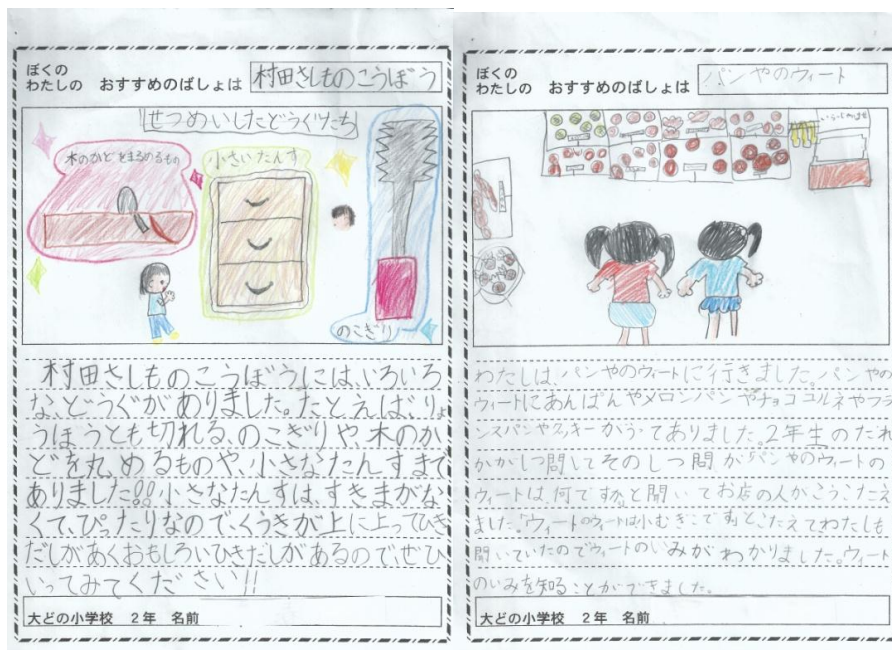 ぼくの
わたしの おすすめのばしょは 村田さしものこうぼう
せつめいしたどうぐたち
木のかどをまるめるもの
小さいたんす
のこぎり
村田さしものこうぼうには、いろいろ
な、どうぐがありました。たとえば、りょ
うほうとも切れる、のこぎりや、木のか
どを丸めるものや、小さなたんすまで
ありました!!小さなたんすは、すきまがな
くて、ぴったりなので、くうきが上に上ってひき
だしがあくおもしろいひきだしがあるので、ぜひ
いってみてください!!
大どの小学校 2年 名前
ぼくの
わたしの おすすめのばしょは パンやのウィート
わたしは、パンやのウィートに行きました。パンやの
ウィートにあんぱんやメロンパンやチョココルネやフラ
ンスパンやクッキーがうってありました。2年生のだれ
かがしつ問してそのしつ問がパンやのウィートの
ウィートは何ですかと聞いてお店の人がこうこたえ
ました。「ウィートのウィートは小むぎこです」とこたえてわたしも
聞いていたのでウィートのいみがわかりました。ウィート
のいみを知ることができました。
大どの小学校 2年 名前